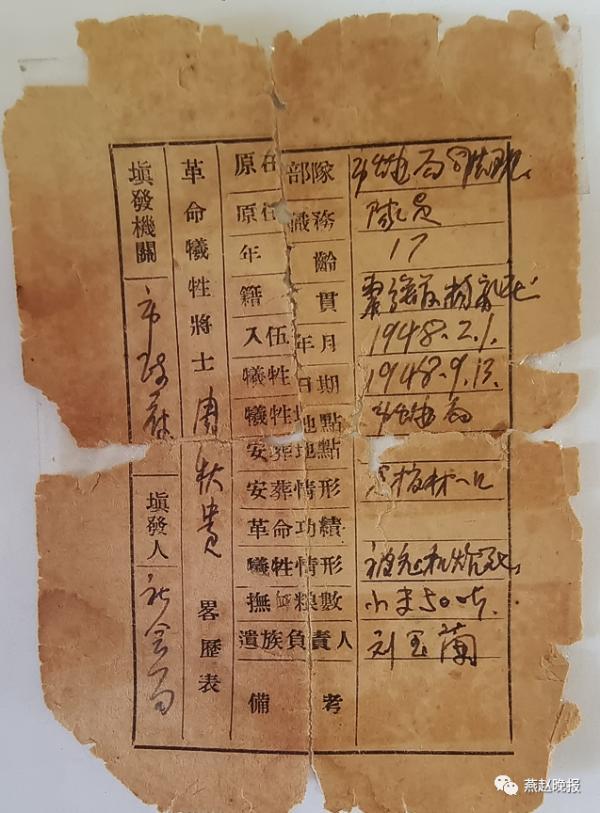 填發機關 市政府 填發人 社会局
革命犧牲將士 貴 畧歷表
原在部隊
原任職務 隊員
年齡 17
籍貫
入伍年月 1948.2.1.
犧牲日期 1948.9.13.
犧牲地點
安葬地點
安葬情形 板材一口
革命功績
犧牲情形 被飞机炸死
撫卹糧數 小米50
遺族負責人 刘玉蘭
備考
燕赵晚报